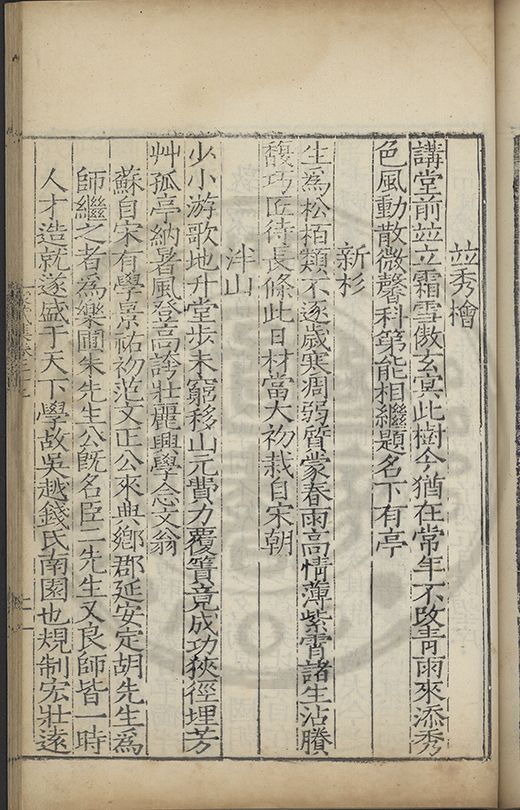 竝秀檜
講堂前竝立霜雪傲玄冥此樹今猶在常年不改靑雨來添秀
色風動散微馨科第能相繼題名下有亭
新杉
生爲松栢類不逐歲寒凋弱質蒙春雨高情薄紫霄諸生沾賸
馥巧匠待長條此日材當大初栽自宋朝
泮山
少小游歌地升堂步未窮移山元費力覆簣竟成功狹徑埋芳
艸孤亭納暑風登高誇壯麗興學念文翁
蘇自宋有學景祐初范文正公來典鄉郡延安定胡先生爲
師繼之者爲樂圃朱先生公旣名臣二先生又良師皆一時
人才造就遂盛于天下學故吳越錢氏南園也規制宏壯遠